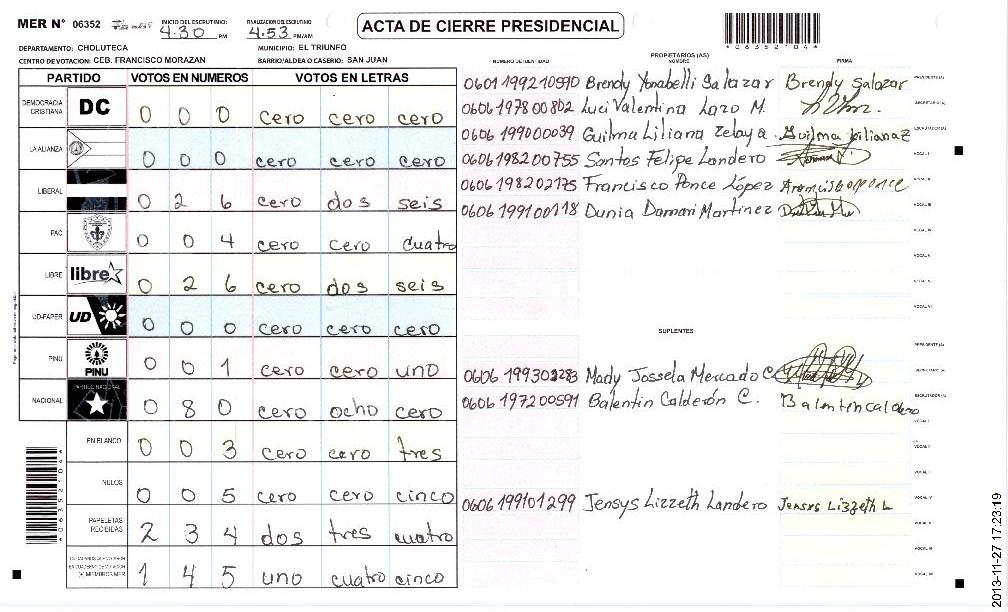 MER N° 06352
INICIO DEL ESCRUTINIO
4:30 PM
FINALIZACION DEL ESCRUTINIO
4:53 PM/AM
ACTA DE CIERRE PRESIDENCIAL
*06352104*
DEPARTAMENTO: CHOLUTECA
MUNICIPIO: EL TRIUNFO
CENTRO DE VOTACION: CEB. FRANCISCO MORAZAN
BARRIO/ALDEA O CASERIO: SAN JUAN
PARTIDO VOTOS EN NUMEROS VOTOS EN LETRAS
DEMOCRACIA CRISTIANA DC 0 0 0 cero cero cero
LA ALIANZA 0 0 0 cero cero cero
LIBERAL 0 2 6 cero dos seis
PAC 0 0 4 cero cero cuatro
LIBRE libre 0 2 6 cero dos seis
UD-FAPER UD 0 0 0 cero cero cero
PINU PINU 0 0 1 cero cero uno
NACIONAL PARTIDO NACIONAL 0 8 0 cero ocho cero
EN BLANCO 0 0 3 cero cero tres
NULOS 0 0 5 cero cero cinco
PAPELETAS RECIBIDAS 2 3 4 dos tres cuatro
CIUDADANOS QUE VOTARON EN CUADERNO DE VOTACION (+) MIEMBROS MER 1 4 5 uno cuatro cinco
*06352104*
PROPIETARIOS (AS)
NUMERO DE IDENTIDAD NOMBRE FIRMA
0601199210590 Brendy Yonabelli Salazar Brendy Salazar PRESIDENTE (A)
0606197800802 Luci Valentina Lazo M. SECRETARIO (A)
060619900039 Guilma Liliana Zelaya Guilma Liliana Z ESCRUTADOR (A)
0606198200755 Santos Felipe Landero VOCAL I
0606198202175 Francisco Ponce López Francisco ponce VOCAL II
0606199100118 Dunia Damari Martinez VOCAL III
VOCAL IV
VOCAL V
VOCAL VI
SUPLENTES
PRESIDENTE (A)
Mady Jossela Mercado C. SECRETARIO (A)
0606197200591 Balentin Calderón C. Balentin caldero ESCRUTADOR (A)
VOCAL I
VOCAL II
VOCAL III
0606199101299 Jensys Lizzeth Landero Jensys Lizzeth L VOCAL IV
VOCAL V
VOCAL VI
VOCAL VII
2013-11-27 17:23:19